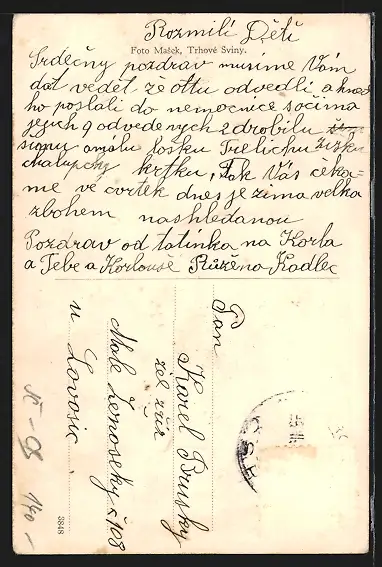 Rozmilí Děti
Foto Mašek, Trhové Sviny.
Srdečny pozdrav musime Vám
dat vedet že ottu odvedli a hned
ho poslali do nemocnice sočima
jejich 9 odvedenych 2 drobilu
siomu a malu Josku Trelichu
chalupcky krtku, Tak Vás čeka-
me ve cvrtek dnes je zima velka
zbohem nashledanou
Pozdrav od tatinka na Korla
a Tebe a Korlouše Růžena Kadlec
Pan
Karel Brusky
zel zříz
Male Žernoseky č 108
u Lovosic
3848